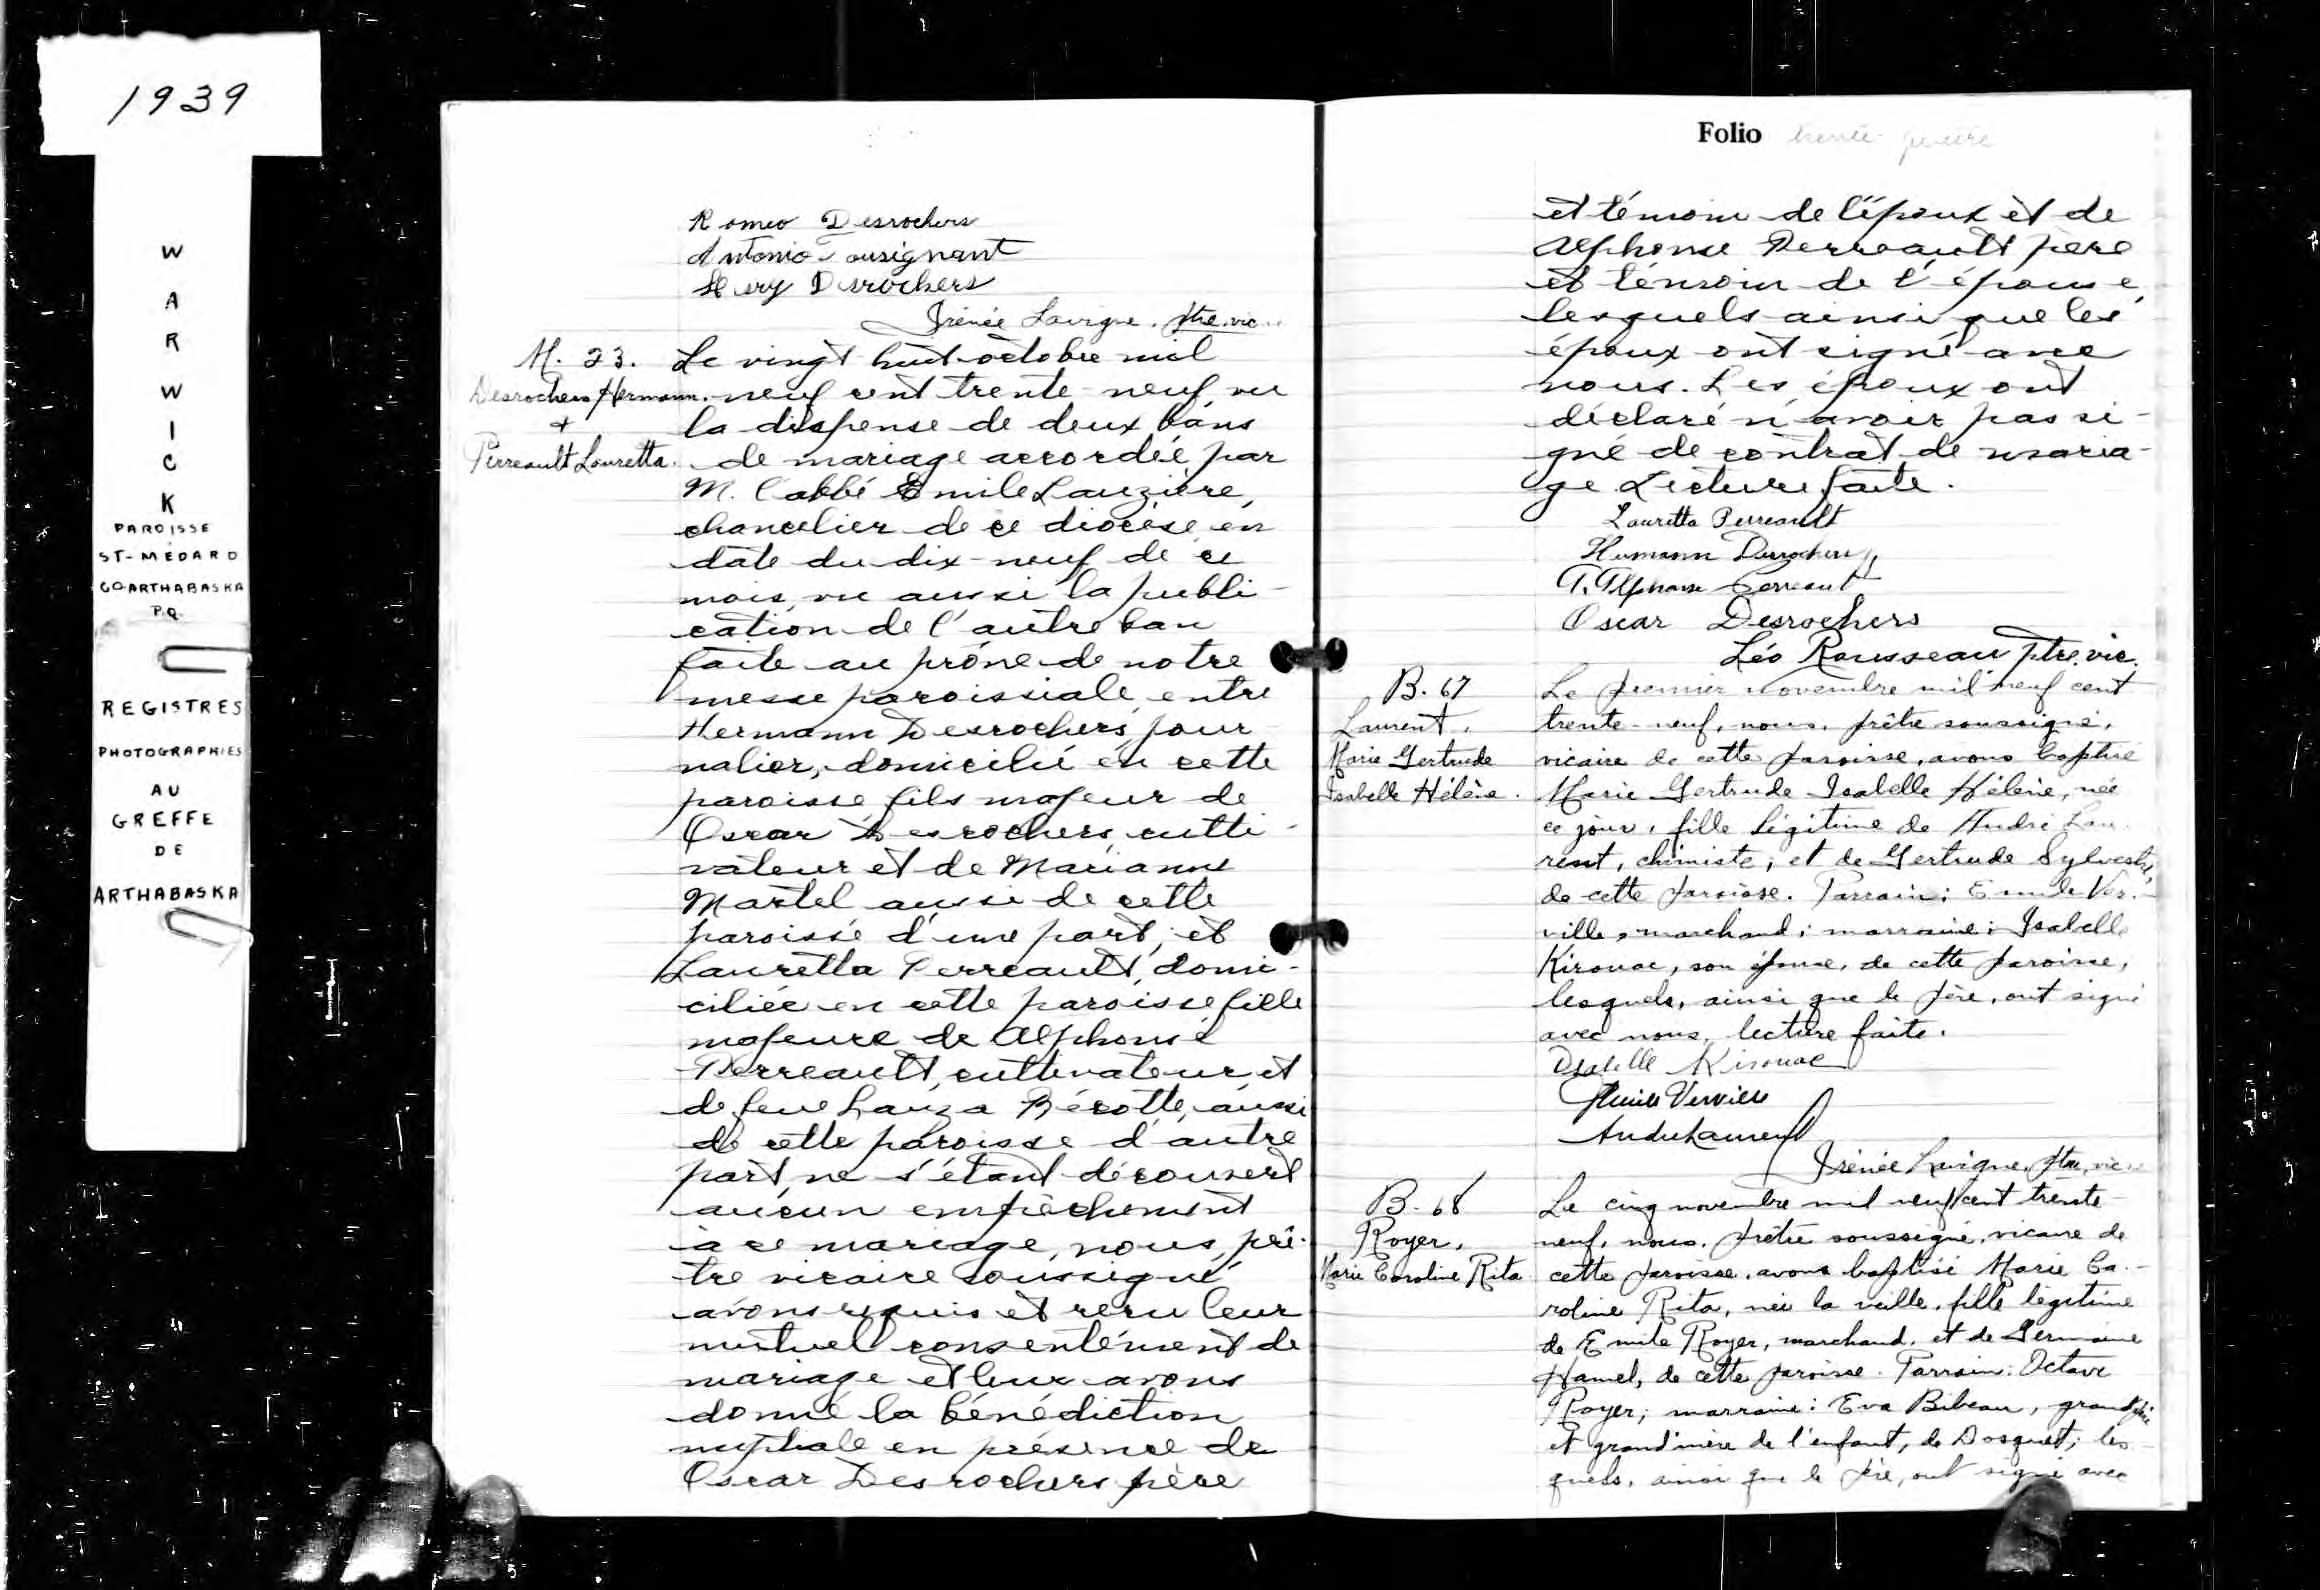 1939
W
A
R
W
I
C
K
PAROISSE
ST-MÉDARD
CO-ARTHABASKA
P.Q.
REGISTRES
PHOTOGRAPHIES
AU
GREFFE
DE
ARTHABASKA
Romeo Desrochers
Antonio ousignant
Desrochers
Irénée Lavigne, ptre. vic.
M. 23.
Desrochers Hermann.
+
Perreault Lauretta.
Le vingt huit octobre mil
neuf cent trente-neuf, vu
la dispense de deux bans
de mariage accordée par
M. l'abbé Emile Lauzière,
chancelier de ce diocèse en
date du dix-neuf de ce
mois, vu aussi la publi-
cation de l'autre ban
faite au prône de notre
messe paroissiale entre
Hermann Desrochers, jour-
nalier, domicilié en cette
paroisse fils majeur de
Oscar Desrochers, culti-
vateur et de Marianne
Martel aussi de cette
paroisse d'une part; et
Lauretta Perreault, domi-
ciliée en cette paroisse, fille
majeure de Alphonse
Perreault, cultivateur, et
de feue Lauza Bécotte, aussi
de cette paroisse d'autre
part, ne s'étant découvert
aucun empêchement
à ce mariage, nous, prê-
tre vicaire soussigné
avons requis et reçu leur
mutuel consentement de
mariage et leur avons
donné la bénédiction
nuptiale en présence de
Oscar Desrochers père
Folio trente-quatre
et témoin de l'époux et de
Alphonse Perreault père
et témoin de l'épouse,
lesquels ainsi que les
époux ont signé avec
nous. Les époux ont
déclaré n'avoir pas si-
gné de contrat de maria-
ge Lecture faite.
Lauretta Perreault
Hermann Desrochers
Alphonse Perreault
Oscar Desrochers
Léo Rousseau Ptre. vic.
B. 67
Laurent,
Marie Gertrude
Isabelle Hélène.
Le premier novembre mil neuf cent
trente-neuf, nous, prêtre soussigné,
vicaire de cette paroisse, avons baptisé
Marie Gertrude Isabelle Hélène, née
ce jour, fille légitime de André Lau-
rent, chimiste, et de Gertrude Sylvestre,
de cette paroisse. Parrain: Emile Ver-
ville, marchand; marraine: Isabelle
Kirouac, son épouse, de cette paroisse,
lesquels, ainsi que le père, ont signé
avec nous, lecture faite.
Isabelle Kirouac
Emile Verville
André Laurent
Irénée Lavigne, ptre, vic.
B. 68
Royer,
Marie Caroline Rita
Le cinq novembre mil neuf cent trente-
neuf, nous, prêtre soussigné, vicaire de
cette paroisse, avons baptisé Marie Ca-
roline Rita, née la veille, fille légitime
de Emile Royer, marchand, et de Germaine
Hamel, de cette paroisse. Parrain: Octave
Royer; marraine: Eva Bibeau, grand'père
et grand'mère de l'enfant, de Dosquet; les-
quels, ainsi que le père, ont signé avec